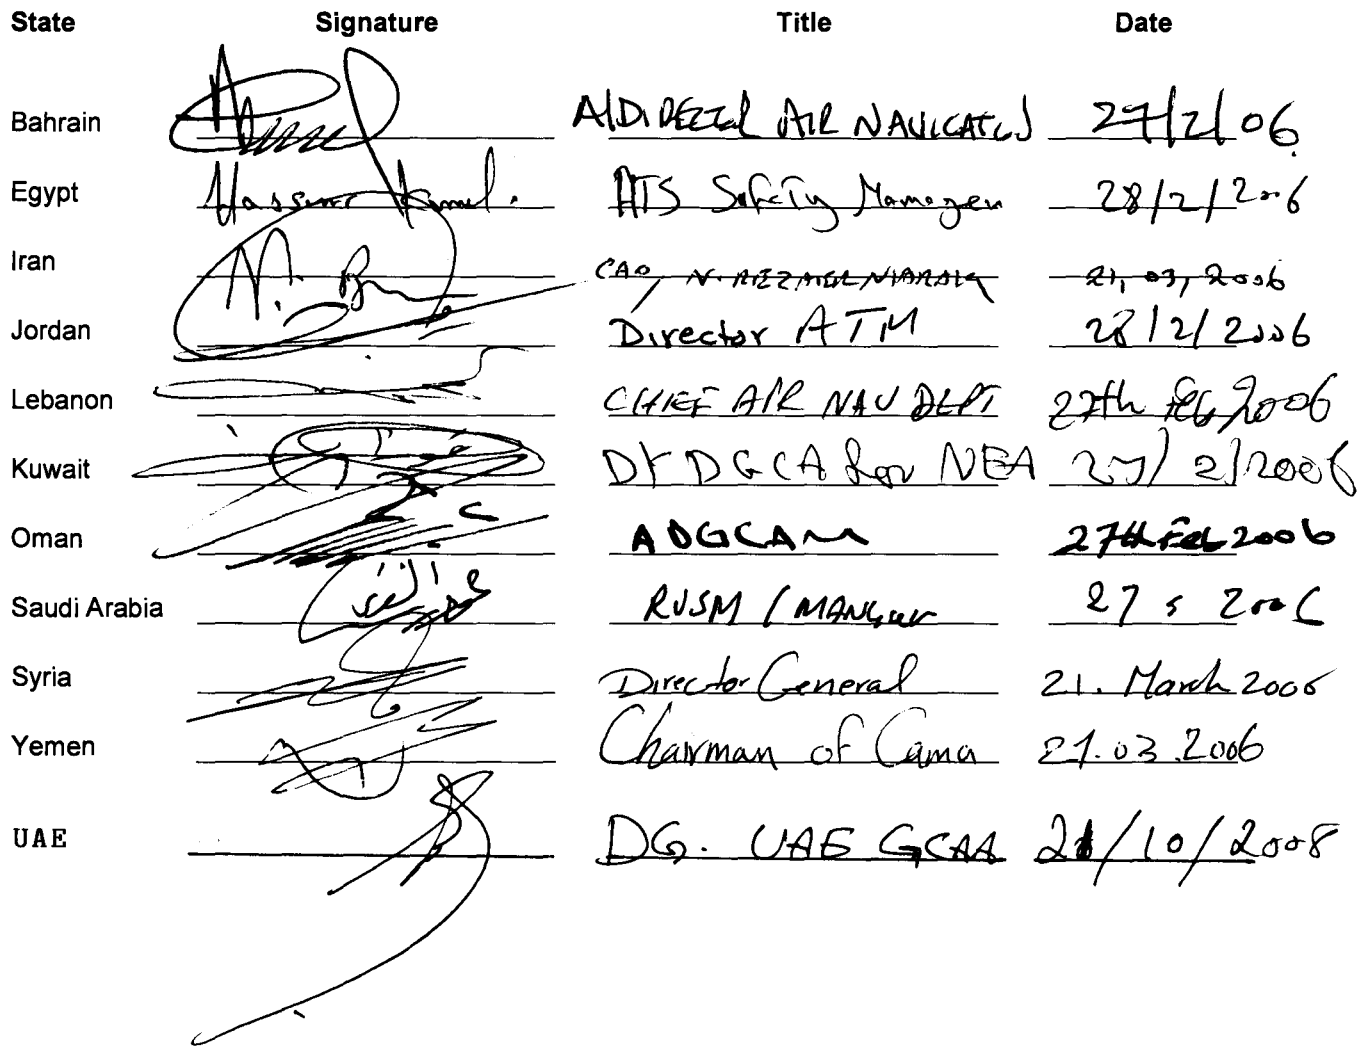 State Signature Title Date
Bahrain A/DIRECTOR AIR NAVIGATION 27/2/06
Egypt Hassan Kamel. ATS Safety Manager 28/2/2006
Iran CAO, 21,03,2006
Jordan Director ATM 28/2/2006
Lebanon CHIEF AIR NAV DEPT 27th Feb, 2006
Kuwait DY DGCA for NEA 27/2/2006
Oman ADGCAM 27th Feb 2006
Saudi Arabia RVSM / 27 2006
Syria Director General 21. March 2006
Yemen Chairman of Cama 21.03.2006
UAE DG. UAE GCAA 21/10/2008